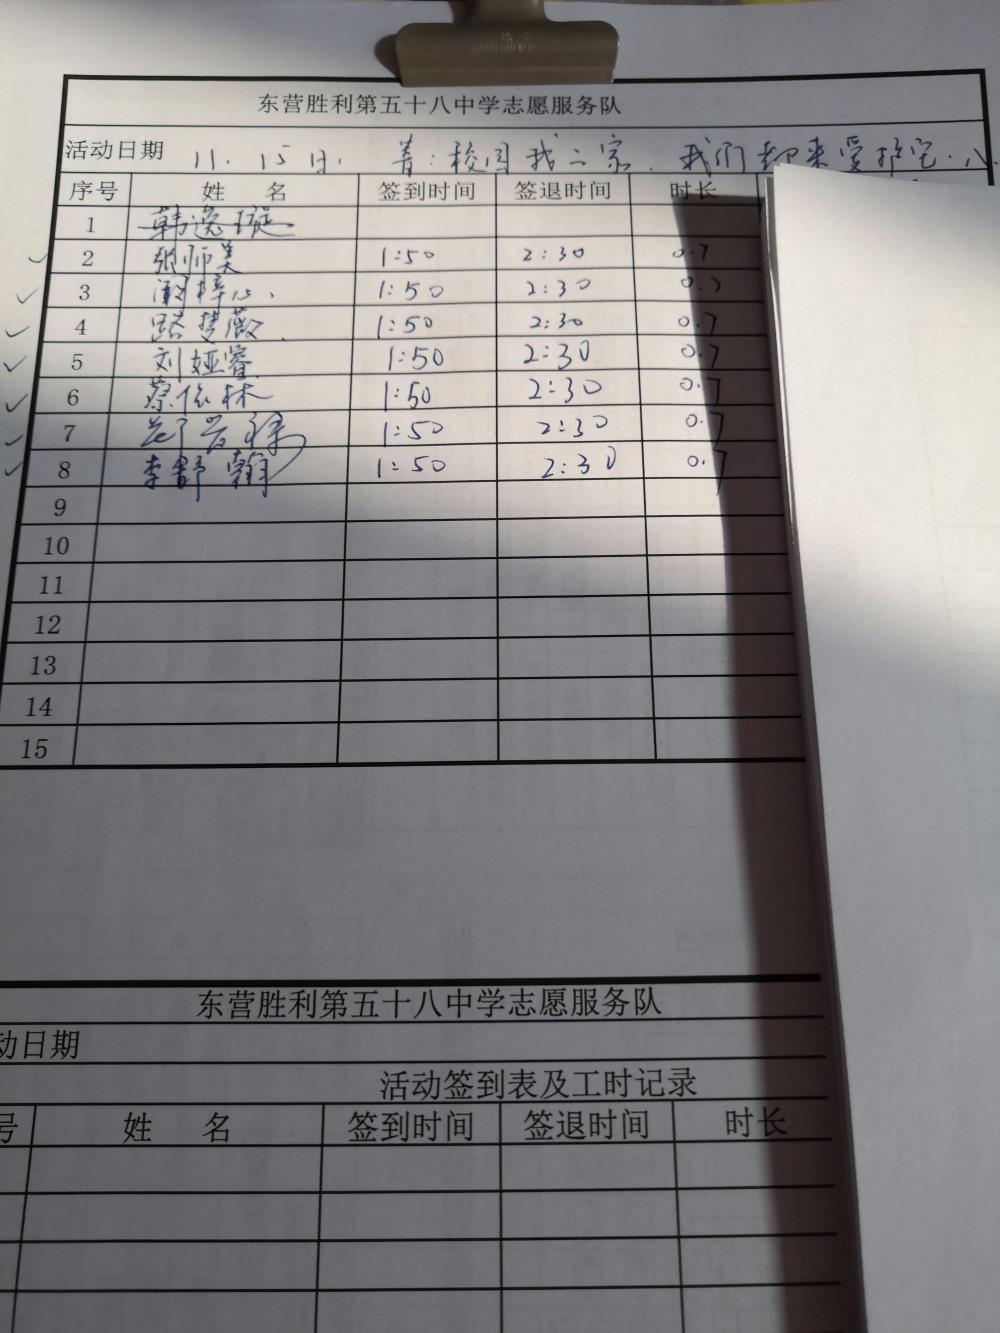 东营胜利第五十八中学志愿服务队
活动日期 11.15日. 菁:校园我之家.我们都来爱护它.八.
序号 姓 名 签到时间 签退时间 时长
1 韩逸璇
2 张师美 1:50 2:30 0.7
3 1:50 2:30 0.7
4 路梦薇 1:50 2:30 0.7
5 刘娅睿 1:50 2:30 0.7
6 蔡依林 1:50 2:30 0.7
7 1:50 2:30 0.7
8 李舒翰 1:50 2:30 0.7
9
10
11
12
13
14
15
东营胜利第五十八中学志愿服务队
动日期
活动签到表及工时记录
号 姓 名 签到时间 签退时间 时长